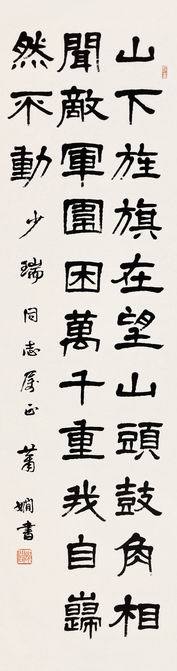 山下旌旗在望山頭鼓角相
聞敵軍圍困萬千重我自巋
然不動
少瑞同志属正 蕭嫻書